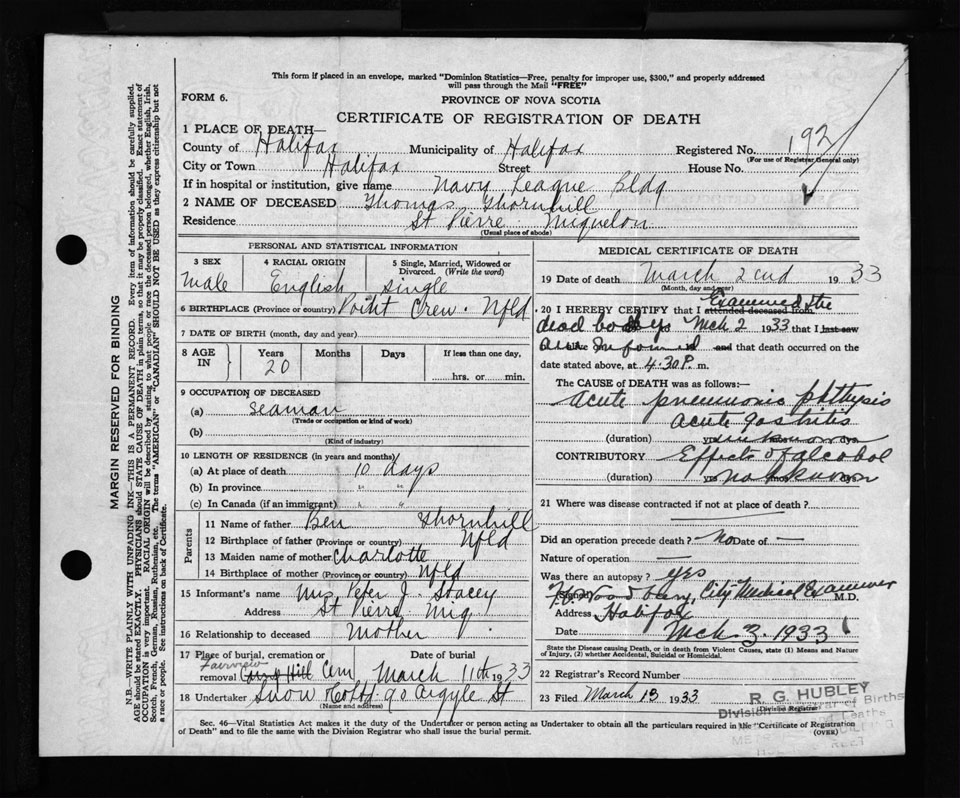 This form if placed in an envelope, marked "Dominion Statistics—Free, penalty for improper use, $300," and properly addressed
will pass through the Mail "FREE"
FORM 6.
PROVINCE OF NOVA SCOTIA
CERTIFICATE OF REGISTRATION OF DEATH
1 PLACE OF DEATH—
County of Halifax Municipality of Halifax Registered No. 192
(For use of Registrar General only)
City or Town Halifax Street House No.
If in hospital or institution, give name Navy League Bldg
2 NAME OF DECEASED Thomas Thornhill
Residence St Pierre Miquelon
(Usual place of abode)
PERSONAL AND STATISTICAL INFORMATION
3 SEX 4 RACIAL ORIGIN 5 Single, Married, Widowed or Divorced. (Write the word)
Male English Single
6 BIRTHPLACE (Province or country) Point Crew. Nfld
7 DATE OF BIRTH (month, day and year)
8 AGE IN Years Months Days If less than one day,
20 hrs. or min.
9 OCCUPATION OF DECEASED
(a) Seaman
(Trade or occupation or kind of work)
(b)
(Kind of industry)
10 LENGTH OF RESIDENCE (in years and months)
(a) At place of death 10 days
(b) In province " "
(c) In Canada (if an immigrant) " "
Parents
11 Name of father Ben Thornhill
12 Birthplace of father (Province or country) Nfld
13 Maiden name of mother Charlotte
14 Birthplace of mother (Province or country) Nfld
15 Informant's name Mrs Peter J. Stacey
Address St Pierre Miq
16 Relationship to deceased Mother
17 Place of burial, cremation or Date of burial
Fairview
removal Camp Hill Cem March 11th 1933
18 Undertaker Snow & Co Ltd 90 Argyle St
(Name and address)
MEDICAL CERTIFICATE OF DEATH
19 Date of death March 2nd 1933
(Month, day and year)
20 I HEREBY CERTIFY that I attended deceased from Examined the
dead body Mch 2 1933 that I last saw
am informed and that death occurred on the
date stated above, at 4.30 P. m.
The CAUSE OF DEATH was as follows:—
Acute pneumonic phthysis
Acute gastritis
(duration) yrs. unknown dys.
CONTRIBUTORY Effects of alcohol
(duration) yrs. not known
21 Where was disease contracted if not at place of death?
Did an operation precede death? No Date of —
Nature of operation —
Was there an autopsy? yes
(Signed) City Medical Examiner M.D.
Address Halifax
Date Mch. 3. 1933
State the Disease causing Death, or in death from Violent Causes, state (1) Means and Nature of Injury, (2) whether Accidental, Suicidal or Homicidal.
22 Registrar's Record Number
23 Filed March 13 1933
(Division Registrar)
R. G. HUBLEY
Division Registrar of Births
Sec. 46—Vital Statistics Act makes it the duty of the Undertaker or person acting as Undertaker to obtain all the particulars required in the "Certificate of Registration
of Death" and to file the same with the Division Registrar who shall issue the burial permit.
(OVER)
MARGIN RESERVED FOR BINDING
N.B.—WRITE PLAINLY WITH UNFADING INK—THIS IS A PERMANENT RECORD. Every item of information should be carefully supplied.
AGE should be stated EXACTLY. PHYSICIANS should STATE CAUSE OF DEATH in plain terms, so that it may be properly classified. Exact statement of
OCCUPATION is very important. RACIAL ORIGIN will be described by stating to what people or race the deceased person belonged, whether English, Irish,
Scotch, French, German, Russian, Ruthenian, etc. The terms "AMERICAN" or "CANADIAN" SHOULD NOT BE USED as they express citizenship but not
a race or people. See instructions on back of Certificate.